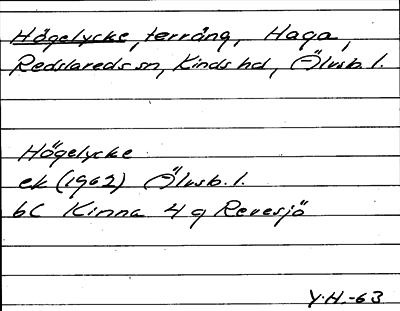 Högelycke, terräng, Haga,
Redslareds sn, Kinds hd, Älvsb. l.
Högelycke
ek (1962) Älvsb. l.
6C Kinna 4 g Revesjö
Y.H.-63